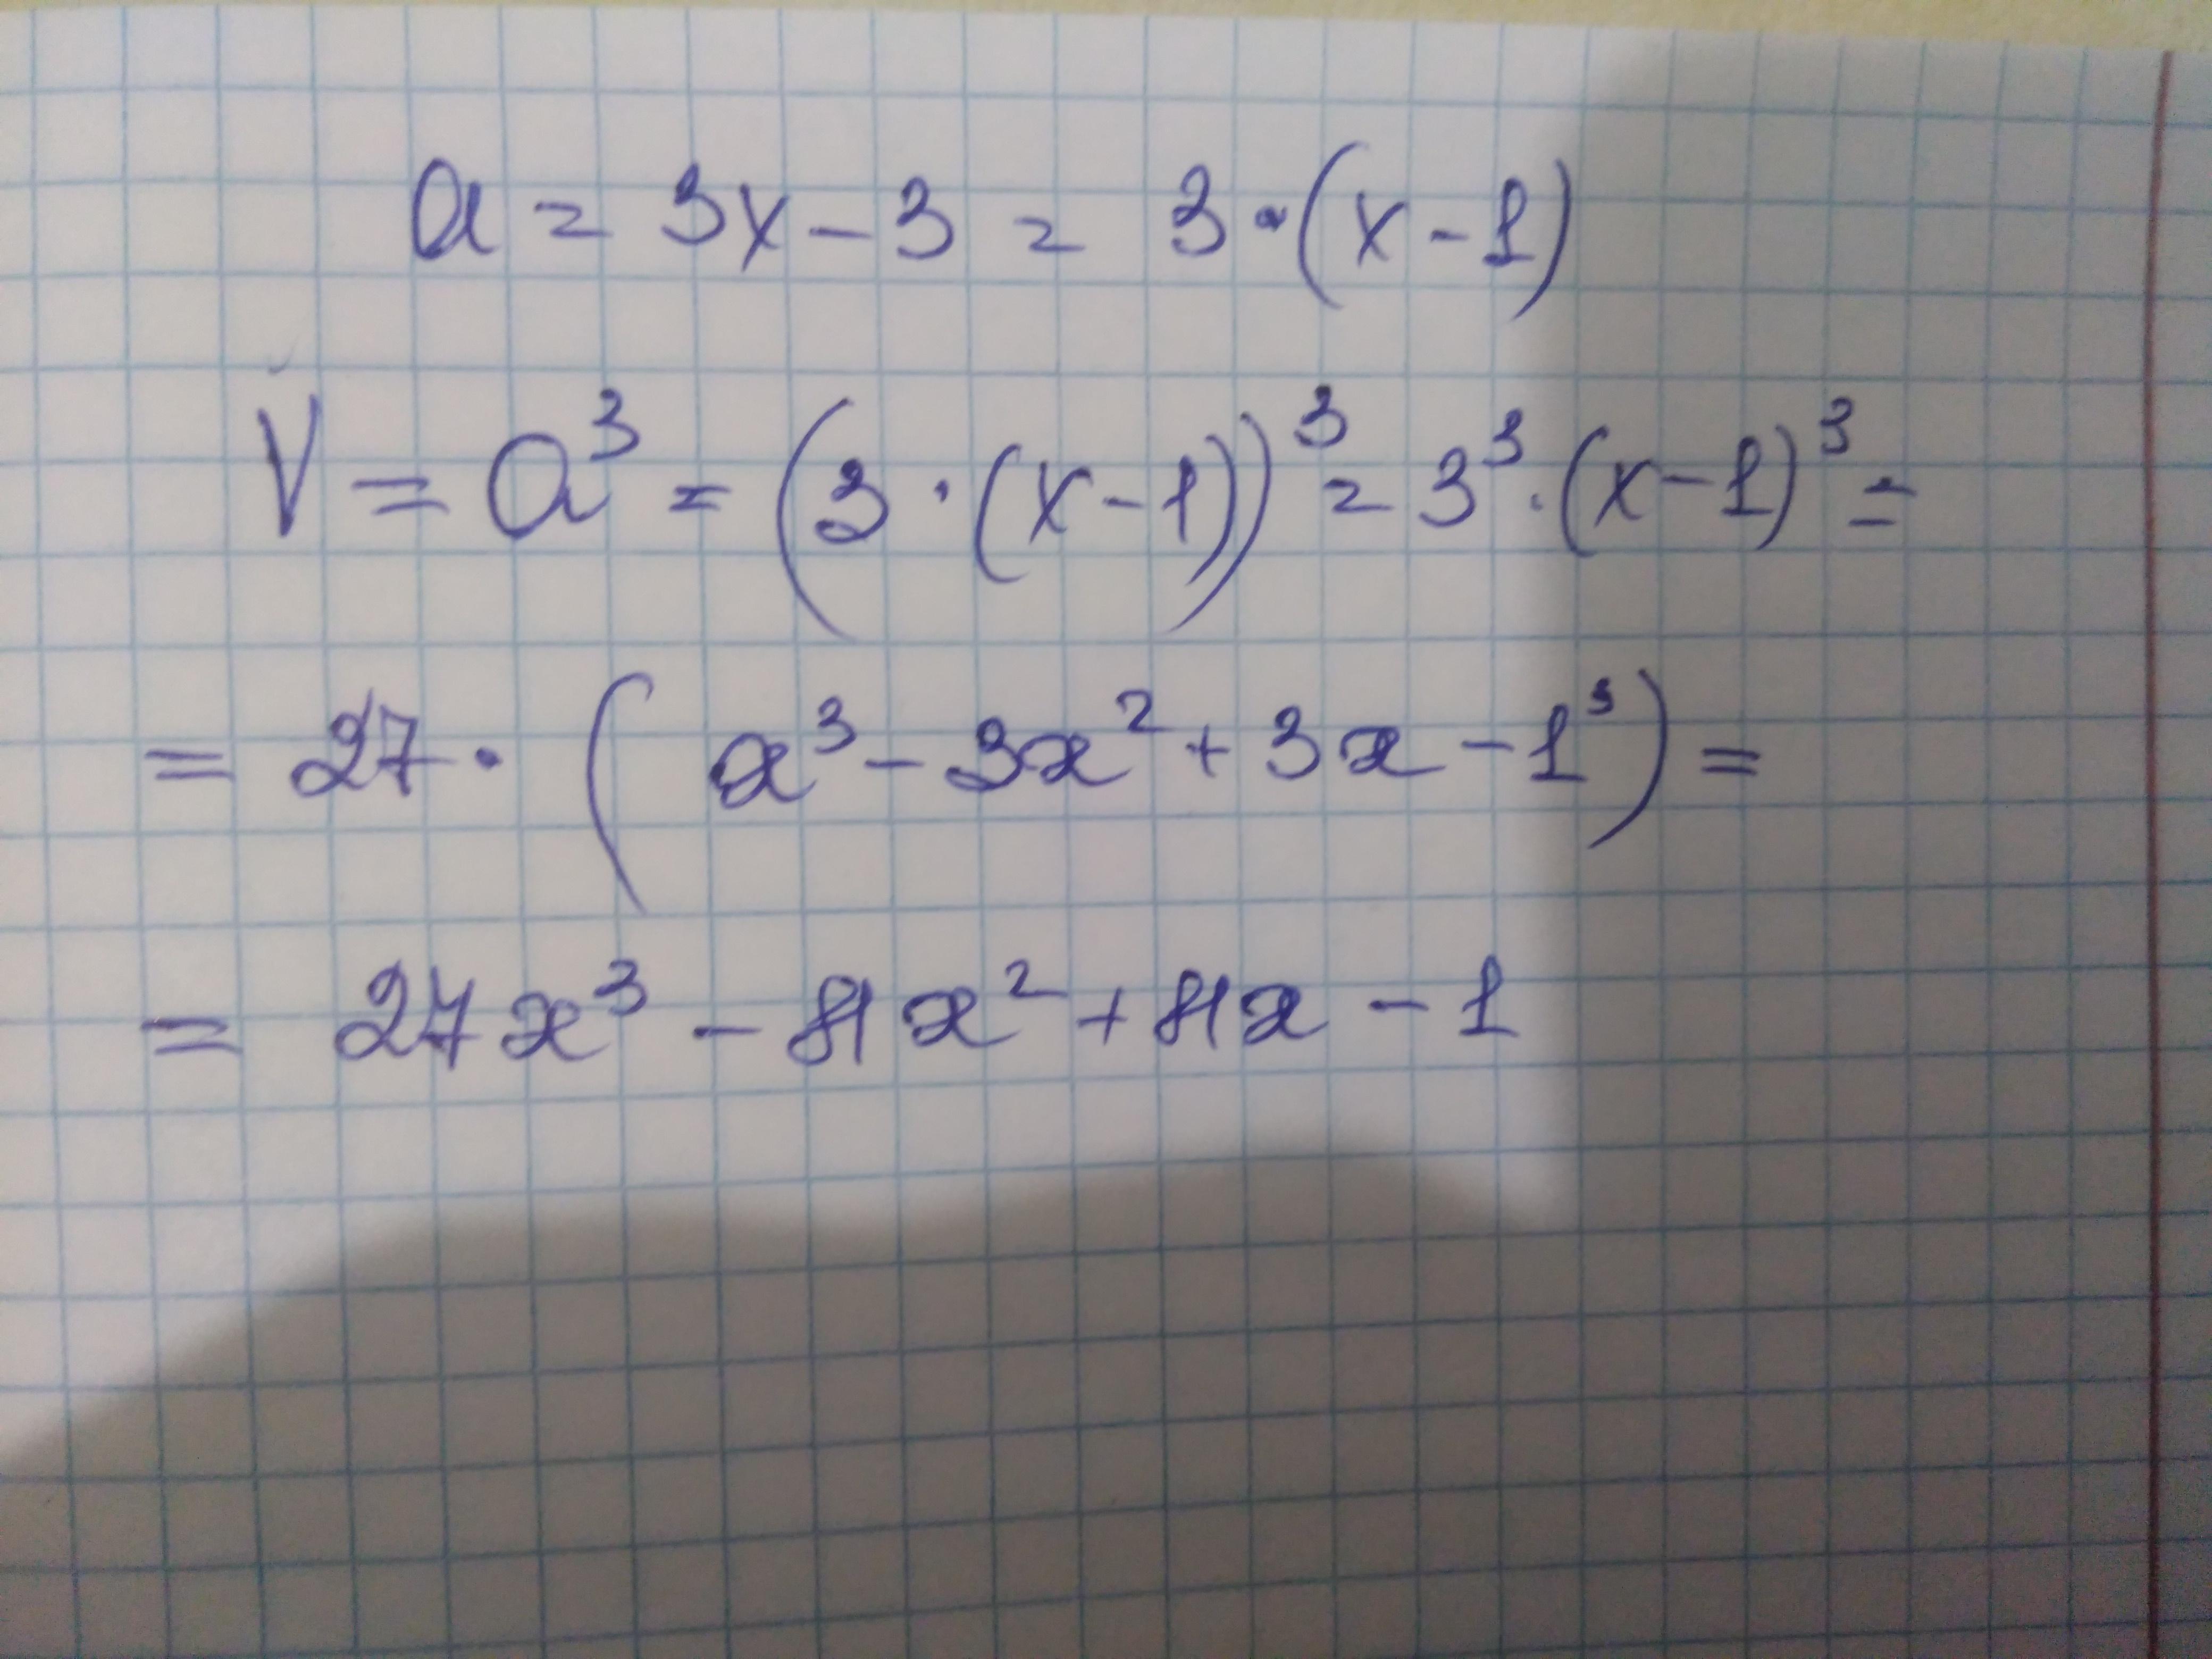 a = 3x - 3 = 3·(x - 1)
V = a³ = (3·(x - 1))³ = 3³·(x - 1)³ =
= 27·(x³ - 3x² + 3x - 1³) =
= 27x³ - 81x² + 81x - 1